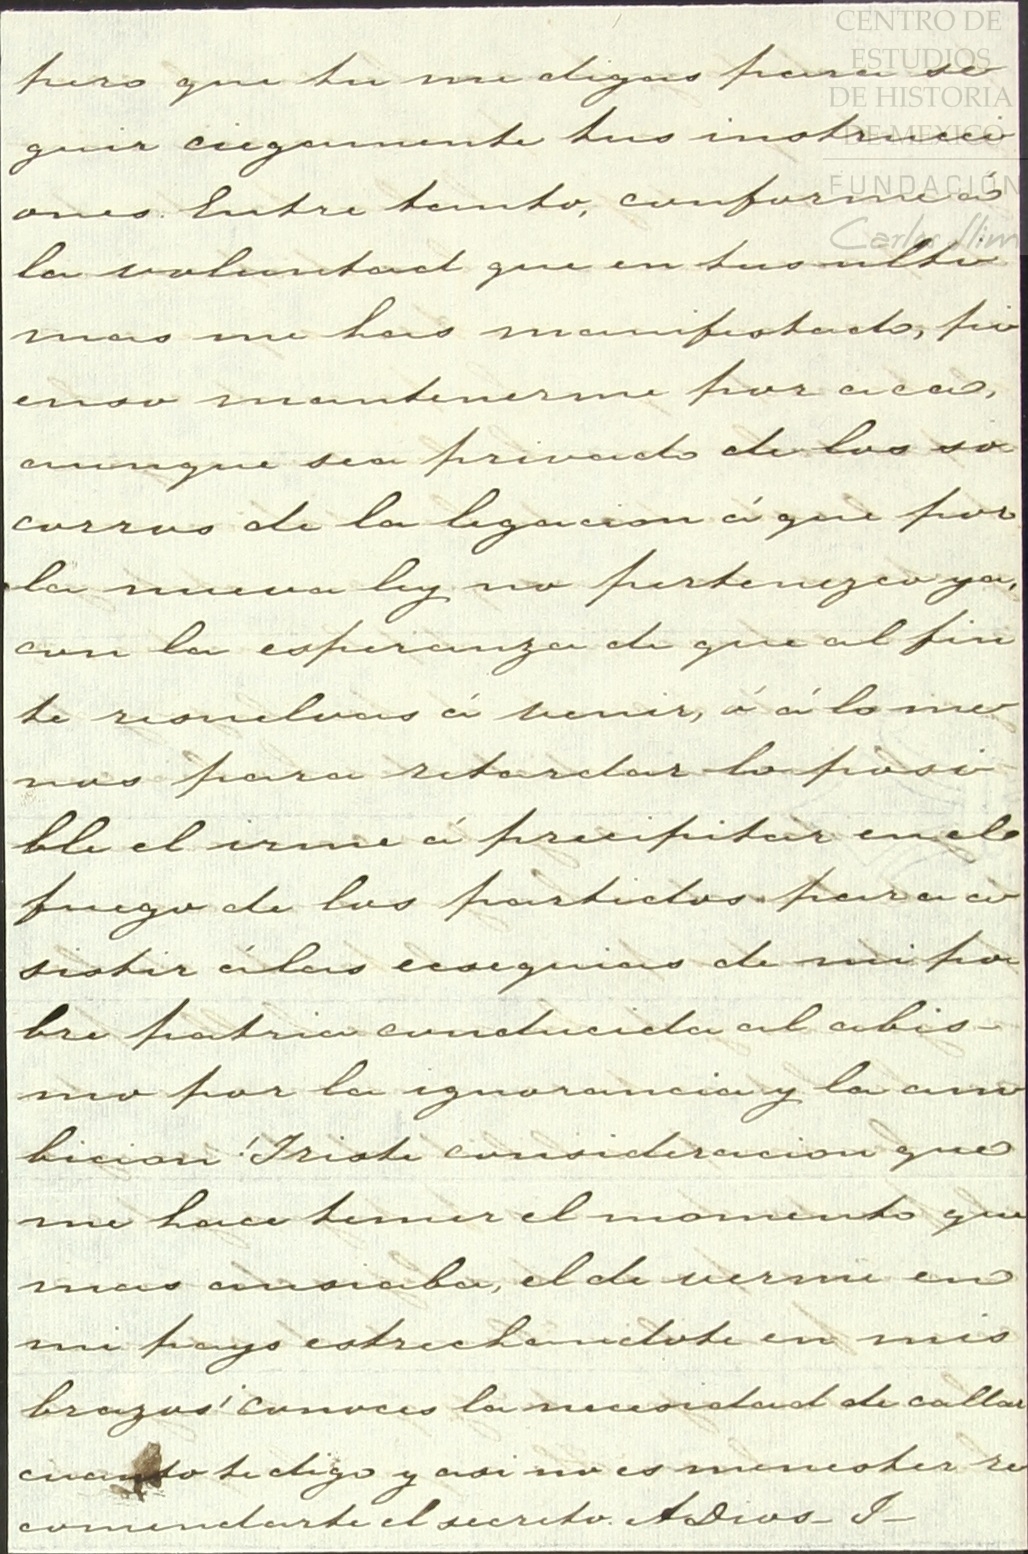 CENTRO DE
ESTUDIOS
DE HISTORIA
DE MEXICO
FUNDACIÓN
Carlos Slim
pero que tu me digas para se
guir ciegamente tus instrucci
ones. Entre tanto, conforme á
la voluntad que en tus ulti
mas me has manifestado, pi
enso mantenerme por aca,
aunque sea privado de los so
corros de la legacion á que por
la nueva ley no pertenezco ya,
con la esperanza de que al fin
te resuelvas á venir, ó á lo me
nos para retardar lo posi
ble el irme á precipitar en el
fuego de los partidos para a
sistir á las ecsequias de mi po
bre patria conducida al abis-
mo por la ignorancia y la am
bicion! Triste consideracion que
me hace temer el momento que
mas ansiaba, el de verme en
mi pays estrechandote en mis
brazos! conoces la necesidad de callar
cuanto te digo y asi no es menester re
comendarte el secreto. A Dios- J-